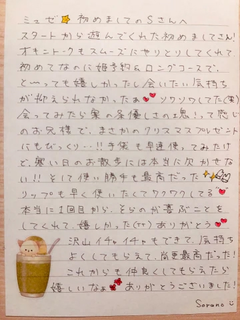 ミュゼ 初めましてのSさんへ
スタートから遊んでくれた初めましてさん!
オキニトークもスムーズにやりとりしてくれて
初めてなのに姫予約&ロングコースで、
と〜っても嬉しかったし会いたい気持ち
が抑えられなかったぁ ソワソワしてた(笑)
会ってみたら案の定優しさの塊!って感じ
のお兄様で、まさかのクリスマスプレゼント
にもびっくり…!! 手袋も早速使ってみたけ
ど、寒い日のお散歩には本当に欠かせな
い!! そして使い勝手も最高だった
リップも早く使いたくてワクワクしてる
本当に1回目から、そらのが喜ぶことを
してくれて、嬉しかった ありがとう
沢山イチャイチャもできて、気持ち
よくしてもらえて、最高だった!
これからも仲良くしてもらえたら
嬉しいなぁ ありがとうございました!
Sorano